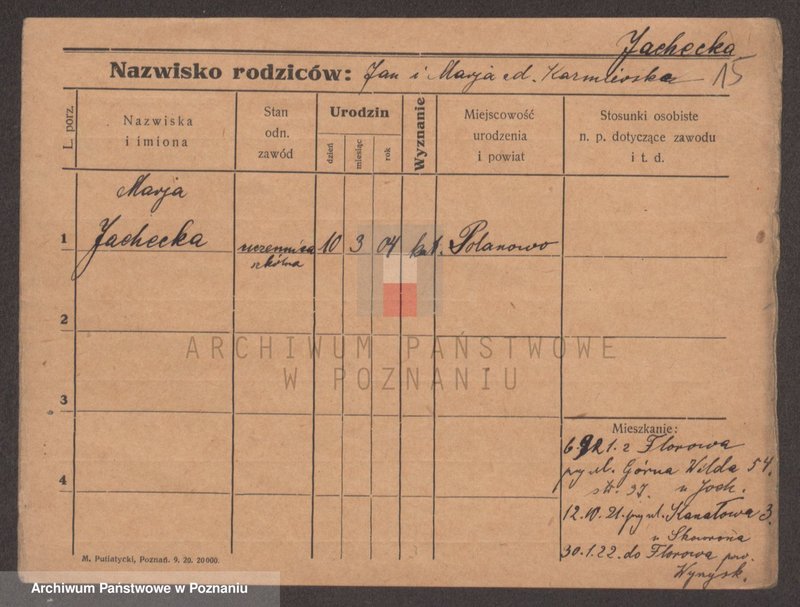 Jachecka
15
Nazwisko rodziców: Jan i Marja od. Karmierska
L. porz.
Nazwiska
i imiona
Stan
odn.
zawód
Urodzin
dzień
miesiąc
rok
Wyznanie
Miejscowość
urodzenia
i powiat
Stosunki osobiste
n. p. dotyczące zawodu
i t. d.
1
Marja
Jachecka
uczennica
szkólna
10 3 04 kat. Polanowo
2
ARCHIWUM PAŃSTWOWE
W POZNANIU
3
4
Mieszkanie:
6.9.21. z Florowa
przy ul. Górna Wilda 54.
str. 37. u Joch.
12.10.21. przy ul. Kanałowa 3.
u Skowrona
30.1.22. do Florowa pow.
Wyrzysk.
M. Putiatycki, Poznań. 9. 20. 20000.
Archiwum Państwowe w Poznaniu